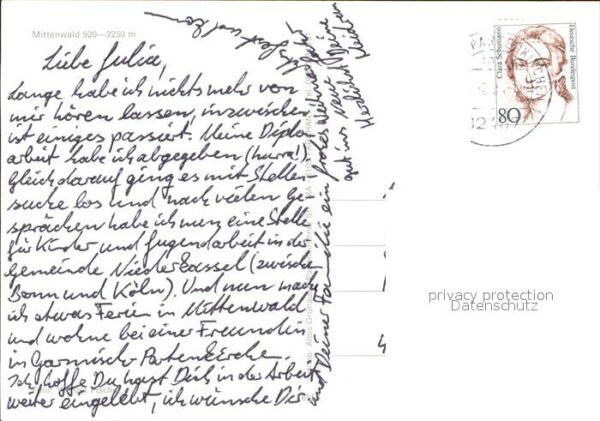 Mittenwald 920—2250 m
Liebe Julia,
lange habe ich nichts mehr von
mir hören lassen, inzwischen
ist einiges passiert. Meine Diplom
arbeit habe ich abgegeben (hurra!).
Gleich darauf ging es mit Stellen
suche los und nach vielen Ge-
sprächen habe ich nun eine Stelle
für Kinder und Jugendarbeit in der
Gemeinde Niederkassel (zwischen
Bonn und Köln). Und nun mache
ich etwas Ferien in Mittenwald
und wohne bei einer Freundin
in Garmisch-Partenkirchen.
Ich hoffe Du hast Dich in der Arbeit
weiter eingelebt, ich wünsche Dir
und Deiner Familie ein frohes Weihnachts
fest und komm
gut ins Neue
Herzlichst Deine
Clara Schumann
Deutsche Bundespost
80
privacy protection
Datenschutz